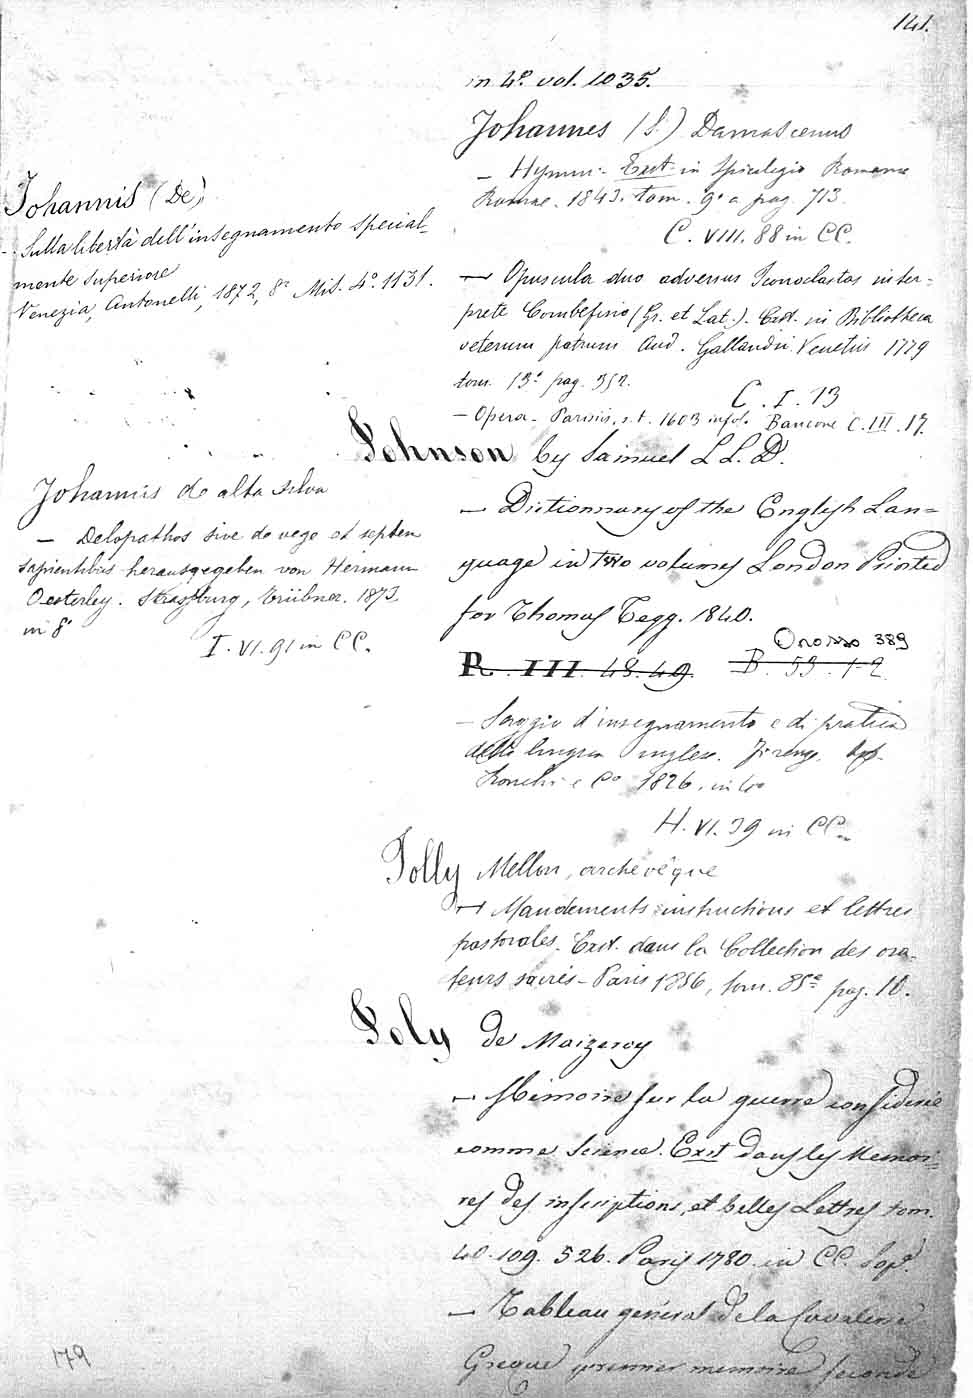 141.
in 4º vol. 1035.
Johannes (S.) Damascenus
— Hymni - Exst. in Spicilegio Romano
Romae. 1843. tom. 9º a pag. 713.
C. VIII. 88 in CC.
— Opuscula duo adversus Iconoclastas inter=
prete Combefisio (Gr. et Lat.). Exst. in Bibliotheca
veterum patrum And. Gallandii. Venetiis 1779
tom. 13º pag. 352.
C. I. 13
— Opera - Parisiis, s. t. 1603 in fol. Bancone C. III. 17.
Johannis (De)
- Sulla libertà dell'insegnamento special-
mente superiore
Venezia, Antonelli, 1872, 8º Mis. 4º. 1131.
Johnson by Samuel L L. D.
— Dictionnary of the English Lan=
guage in two volumes London Printed
for Thomas Tegg. 1840.
Orosso 389
R. III. 48. 49 B. 53. 1-2
Johannis de alta Silva
— Dolopathos sive de rege et septem
sapientibus herausgegeben von Hermann
Oesterley. Strassburg, Trübner. 1873
in 8º
I. VI. 91 in CC.
— Saggio d'insegnamento e di pratica
della lingua inglese. Firenze,
Ronchi e Cº 1826. in
H. VI. 39 in CC.
Jolly Mellon, archevêque
— Mandements instructions et lettres
pastorales. Exst. dans la Collection des ora-
teurs sacrés - Paris 1856, tom. 85º pag. 10.
Joly de Maizeroy
— Mémoire sur la guerre considerée
comme Science. Exst dans les Memoi=
res des inscriptions, et belles Lettres tom.
40. 109. 526. Paris 1780. in CC. Sopª
— Tableau général de la Cavalerie
Greque premier memoire seconde
179